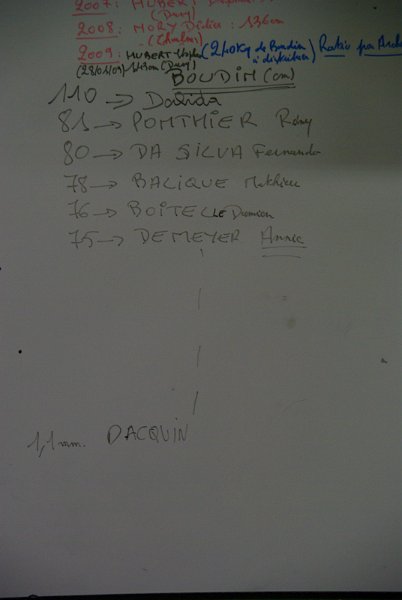 2007: HUBERT
(Dury)
2008: MORY Didier: 136cm
2009: HUBERT (240Kg de Boudin Ratio par
(28/01/09) (Dury) à distribuer)
BOUDIN (cm)
110 → Dalida
81 → PONTHIER Rémy
80 → DA SILVA Fernando
78 → BALIQUE Mathieu
76 → BOITEL LE Damien
75 → DEMEYER Annie
1,1 mm. DACQUIN